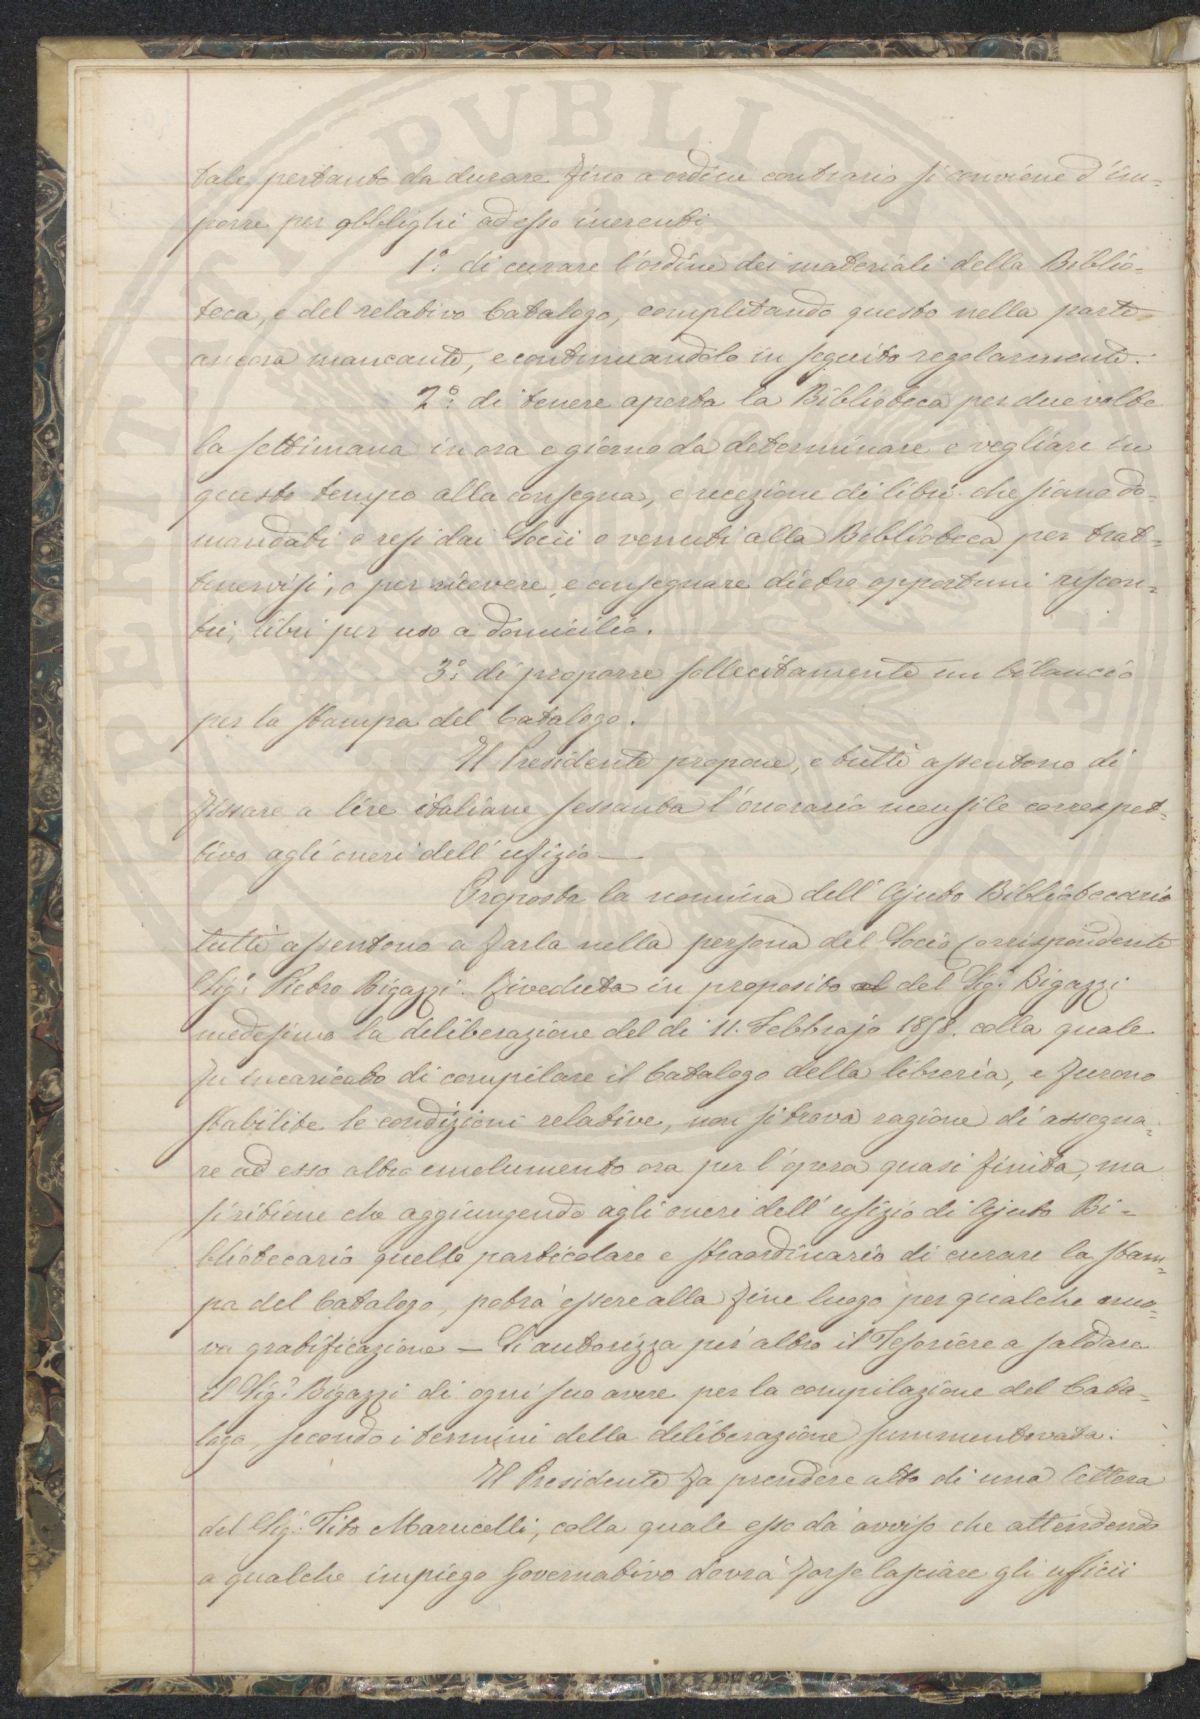 tale, pertanto da durare fino a ordine contrario si conviene d'im-
porre per obblighi ad esso inerenti
1º: di curare l'ordine dei materiali della Biblio-
teca, e del relativo Catalogo, completando questo nella parte
ancora mancante, e continuandolo in seguito regolarmente.
2º: di tenere aperta la Biblioteca per due volte
la settimana in ora e giorno da determinare e vegliare in
questo tempo alla consegna, e recezione di libri che siano do-
mandati o resi dai Socii o venuti alla Biblioteca per trat-
tenervisi, o per ricevere, e consegnare dietro opportuni riscon-
tri, libri per uso a domicilio.
3º: di proporre sollecitamente un bilancio
per la stampa del Catalogo.
Il Presidente propone, e tutti assentono di
fissare a lire italiane sessanta l'onorario mensile corrispet-
tivo agli oneri dell'ufizio —
Proposta la nomina dell'Ajuto Bibliotecario
tutti assentono a farla nella persona del Socio Corrispondente
Sigr. Pietro Bigazzi. Riveduta in proposito del Sigr. Bigazzi
medesimo la deliberazione del di 11. Febbrajo 1858. colla quale
fu incaricato di compilare il Catalogo della libreria, e furono
stabilite le condizioni relative, non si trova ragione di assegna-
re ad esso altro emolumento ora per l'opera quasi finita, ma
si ritiene che aggiungendo agli oneri dell'ufizio di Ajuto Bi-
bliotecario quello particolare e straordinario di curare la stam-
pa del Catalogo, potrà essere alla fine luogo per qualche nuo-
va gratificazione — Si autorizza per altro il Tesoriere a saldare
il Sigr. Bigazzi di ogni suo avere per la compilazione del Cata-
logo, secondo i termini della deliberazione summentovata.
Il Presidente fa prendere atto di una lettera
del Sigr. Tito Marucelli, colla quale esso dà avviso che attendendo
a qualche impiego Governativo dovrà forse lasciare gli ufficii
PUBLICAE